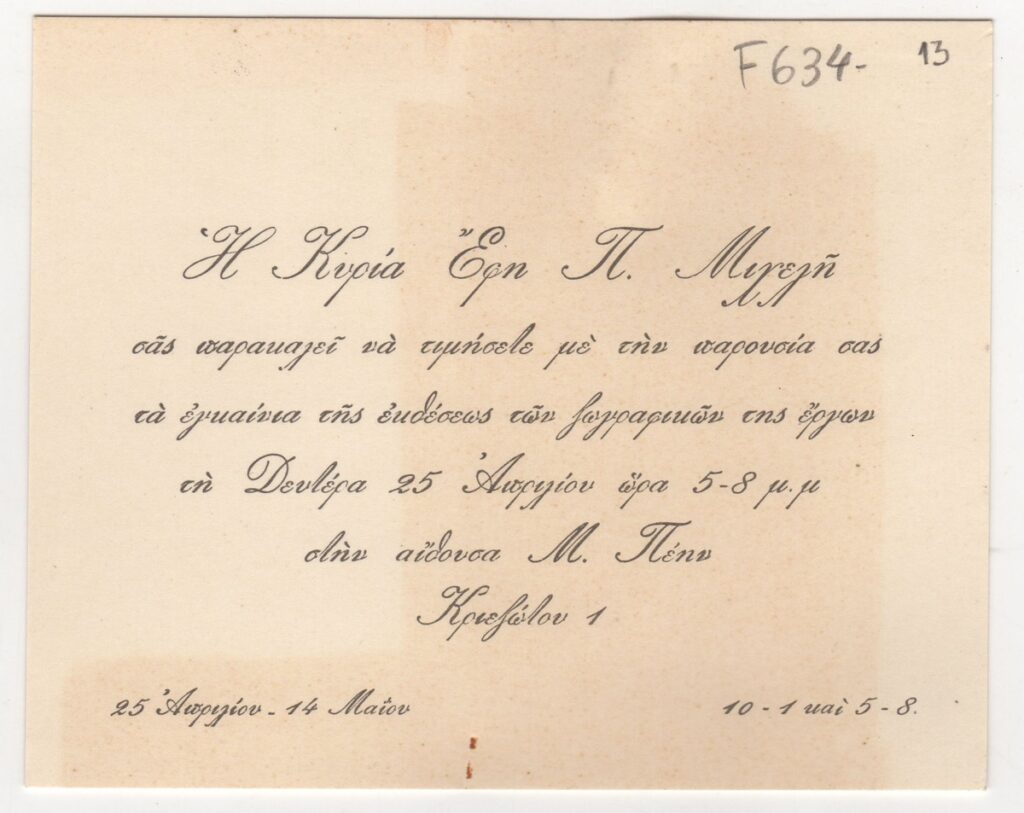 F634- 13
Ἡ Κυρία Ἔφη Π. Μιχελῆ
σᾶς παρακαλεῖ νὰ τιμήσετε μὲ τὴν παρουσία σας
τὰ ἐγκαίνια τῆς ἐκθέσεως τῶν ζωγραφικῶν της ἔργων
τὴ Δευτέρα 25 Ἀπριλίου ὥρα 5-8 μ.μ
στὴν αἴθουσα Μ. Πέην
Κριεζώτου 1
25 Ἀπριλίου - 14 Μαΐου
10 - 1 καὶ 5 - 8.